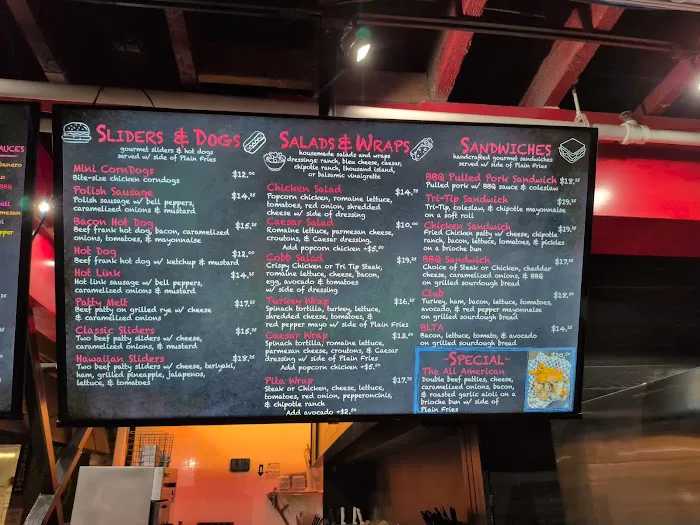 AUCES
SLIDERS & DOGS
gourmet sliders & hot dogs
served w/ side of Plain Fries
Mini CornDogs $12.00
Bite-size chicken corndogs
Polish Sausage $14.25
Polish sausage w/ bell peppers,
caramelized onions & mustard
Bacon Hot Dog $15.25
Beef frank hot dog, bacon, caramelized
onions, tomatoes, & mayonnaise
Hot Dog $12.00
Beef frank hot dog w/ ketchup & mustard
Hot Link $14.25
Hot link sausage w/ bell peppers,
caramelized onions & mustard
Patty Melt $17.25
Beef patty on grilled rye w/ cheese
& caramelized onions
Classic Sliders $15.25
Two beef patty sliders w/ cheese,
caramelized onions, & mustard
Hawaiian Sliders $18.25
Two beef patty sliders w/ cheese, teriyaki,
ham, grilled pineapple, jalapenos,
lettuce, & tomatoes
SALADS & WRAPS
housemade salads and wraps
dressings: ranch, bleu cheese, caesar,
chipotle ranch, thousand island,
or balsamic vinaigrette
Chicken Salad $14.75
Popcorn chicken, romaine lettuce,
tomatoes, red onion, shredded
cheese w/ side of dressing
Caesar Salad $10.00
Romaine lettuce, parmesan cheese,
croutons, & Caesar dressing.
Add popcorn chicken +$5.00
Cobb Salad $19.25
Crispy Chicken or Tri Tip Steak,
romaine lettuce, cheese, bacon,
egg, avocado & tomatoes
w/ side of dressing
Turkey Wrap $16.25
Spinach tortilla, turkey, lettuce,
shredded cheese, tomatoes, &
red pepper mayo w/ side of Plain Fries
Caesar Wrap $13.00
Spinach tortilla, romaine lettuce,
parmesan cheese, croutons, & Caesar
dressing w/ side of Plain Fries
Add popcorn chicken +$5.00
Pita Wrap $17.75
Steak or Chicken, cheese, lettuce,
tomatoes, red onion, pepperoncinis,
& chipotle ranch
Add avocado +$2.50
SANDWICHES
handcrafted gourmet sandwiches
served w/ side of Plain Fries
BBQ Pulled Pork Sandwich $18.25
Pulled pork w/ BBQ sauce & coleslaw
Tri-Tip Sandwich $19.25
Tri-Tip, coleslaw, & chipotle mayonnaise
on a soft roll
Chicken Sandwich $19.25
Fried Chicken patty w/ cheese, chipotle
ranch, bacon, lettuce, tomatoes, & pickles
on a brioche bun
BBQ Sandwich $17.25
Choice of Steak or Chicken, cheddar
cheese, caramelized onions, & BBQ
on grilled sourdough bread
Club $18.00
Turkey, ham, bacon, lettuce, tomatoes,
avocado, & red pepper mayonnaise
on grilled sourdough bread
BLTA $14.25
Bacon, lettuce, tomato, & avocado
on grilled sourdough bread
-SPECIAL-
The All American
Double beef patties, cheese,
caramelized onions, bacon,
& roasted garlic aioli on a
brioche bun w/ side of
Plain Fries